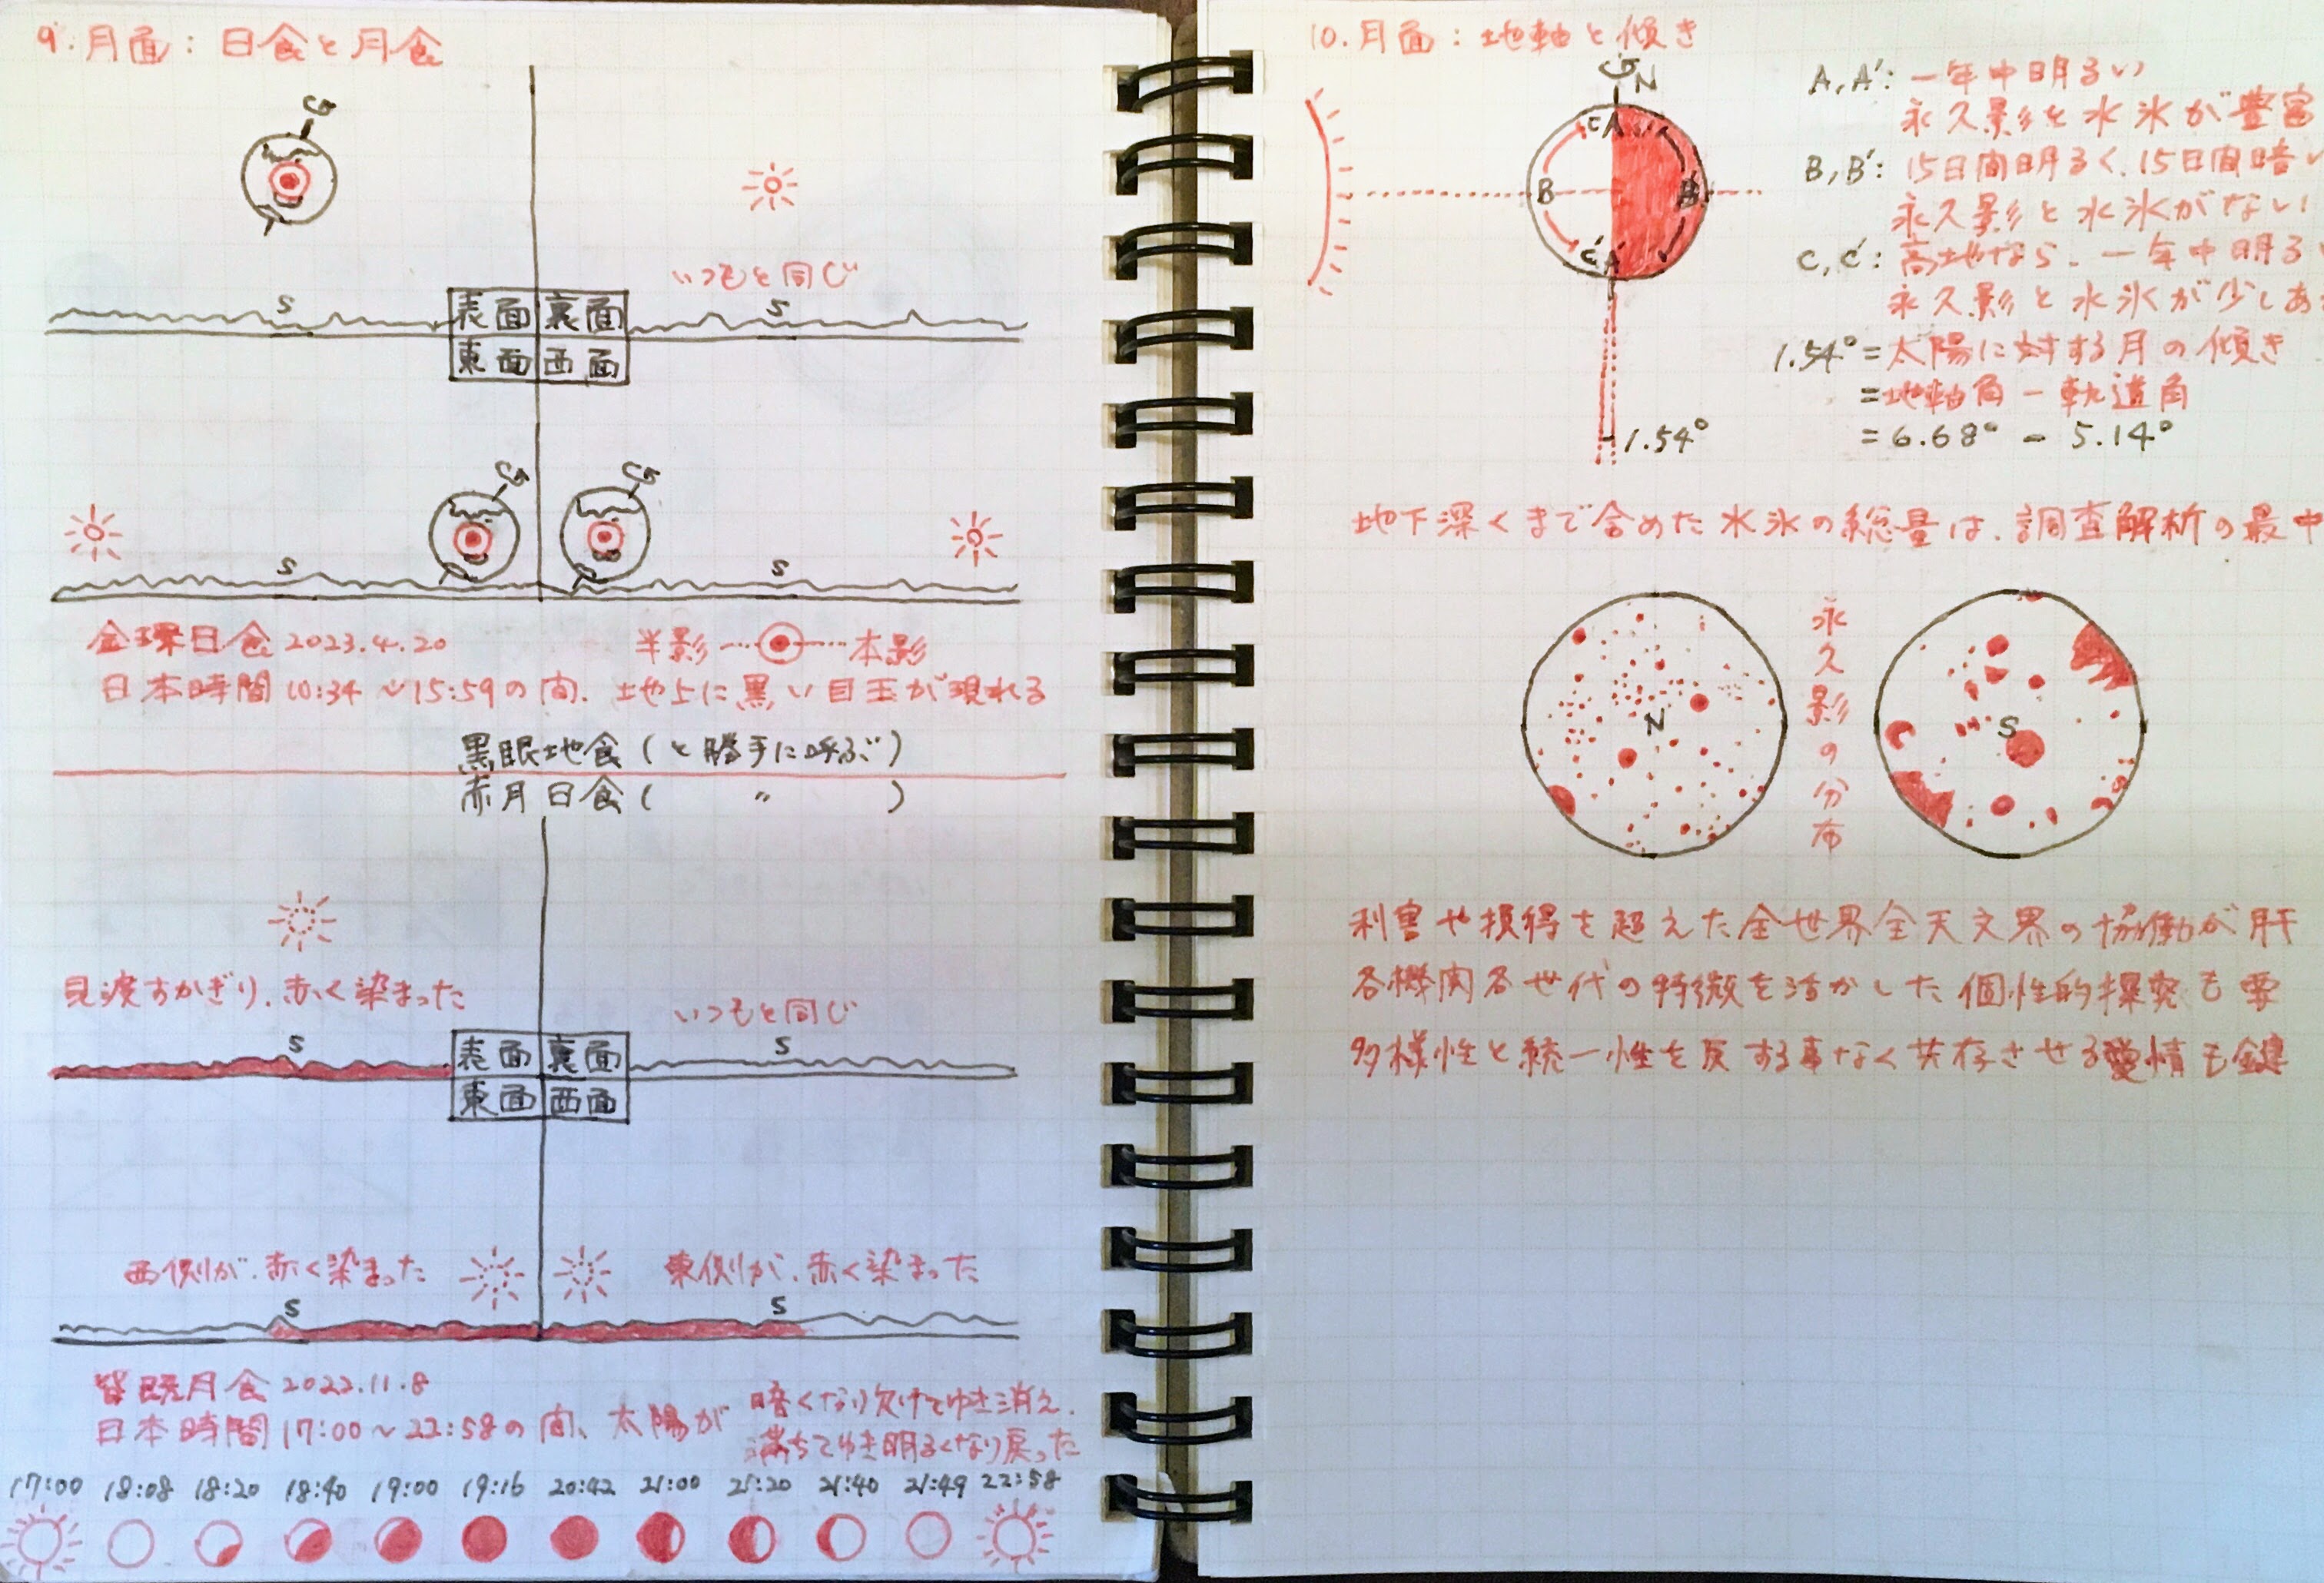 9.月面：日食と月食
いつもと同じ
S
S
表面 裏面
東面 西面
S
S
金環日食 2023.4.20
半影 本影
日本時間 10:34～15:59の間、地上に黒い目玉が現れる
黒眼地食（と勝手に呼ぶ）
赤月日食（ 〃 ）
見渡すかぎり、赤く染まった
いつもと同じ
S
S
表面 裏面
東面 西面
西側が、赤く染まった
東側が、赤く染まった
S
S
皆既月食 2022.11.8
日本時間 17:00～22:58の間、太陽が
暗くなり欠けてゆき消え、
満ちてゆき明るくなり戻った
17:00 18:08 18:20 18:40 19:00 19:16 20:42 21:00 21:20 21:40 21:49 22:58
10.月面：地軸と傾き
N
C A
B B'
C' A'
1.54°
A,A'：一年中明るい
永久影と水氷が豊富
B,B'：15日間明るく、15日間暗い
永久影と水氷がない
C,C'：高地なら、一年中明る
永久影と水氷が少しあ
1.54°=太陽に対する月の傾き
=地軸角－軌道角
=6.68°－5.14°
地下深くまで含めた水氷の総量は、調査解析の最中
N
永久影の分布
S
利害や損得を超えた全世界全天文界の協働が肝
各機関各世代の特徴を活かした個性的探究も要
多様性と統一性を反する事なく共存させる愛情も鍵